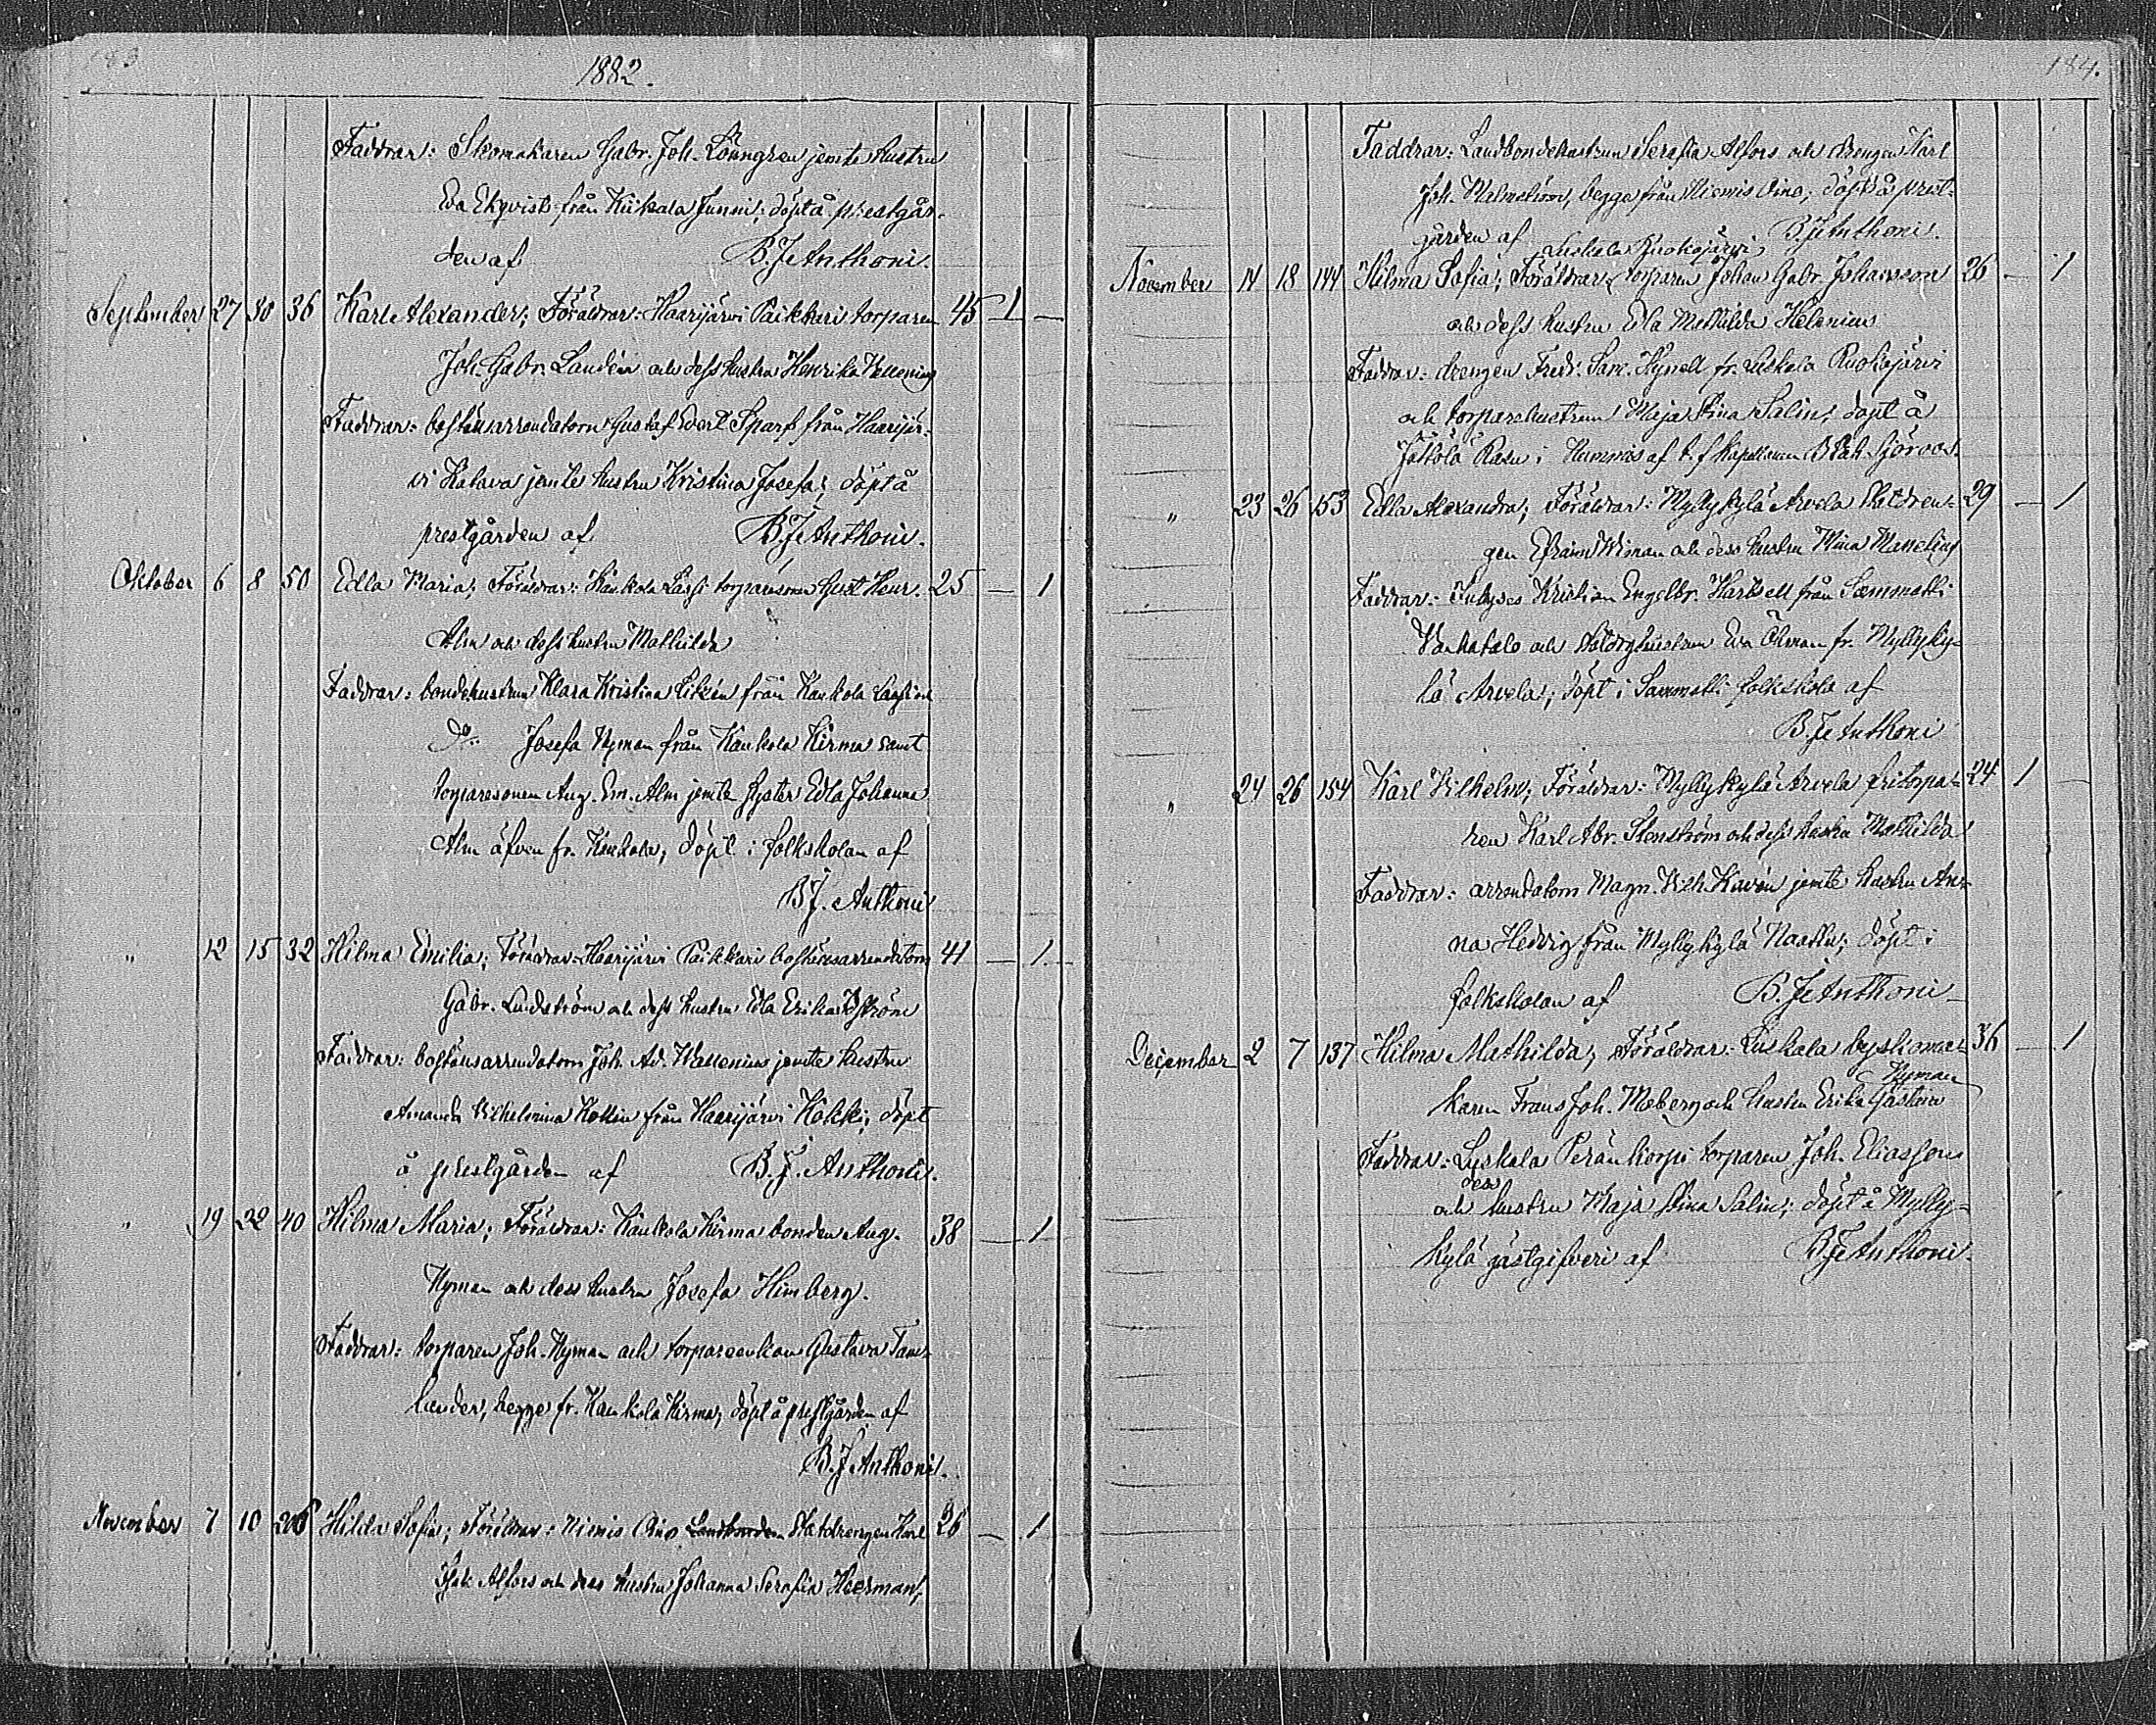 183
1882.
Faddrar: Skomakaren Gabr. Joh. Lönngren jemte hustru
Eva Ekqvist från Kiikala Junni; döpt å prestgår-
den af B. J. Anthoni.
September 27 30 36 Karl Alexander; Föräldrar: Haarijärvi Paikkari torparen 45 1 —
Joh. Gabr. Landén och dess hustru Henrika Wallenius
Faddrar: bostlänsarrendatorn Gustaf Edvert Sparf från Haarijär-
vi Katava jemte hustru Kristina Josefa; döpt å
prestgården af B. J. Anthoni.
Oktober 6 8 50 Edla Maria; Föräldrar: Kaukola Lassi torparesonen Gust. Henr. 25 — 1
Alm och dess hustru Mathilda
Faddrar: bondehustrun Klara Kristina från Kaukola Lassi och
do: Josefa Nyman från Kaukola Kirma samt
torparesonen Aug. Em. Alm jemte syster Edla Johanna
Alm äfven fr. Kaukola; döpt i folkskolan af
B. J. Anthoni
" 12 15 32 Hilma Emilia; Föräldrar: Haarijärvi Paikkari arrendatorn 41 — 1
Gabr. Lindström och dess hustru Edla Erika
Faddrar: arrendatorn Joh. Ad. Wallenius jemte hustru
Amanda Vilhelmina från Haarijärvi Kökki; döpt
å prestgården af B. J. Anthoni.
" 19 22 40 Hilma Maria; Föräldrar: Kaukola Kirma bonden Aug. 38 — 1
Nyman och dess hustru Josefa Himberg.
Faddrar: torparen Joh. Nyman och torpareenkan Gustava Tam-
lander, begge fr. Kaukola Kirma; döpt å prestgården af
B. J. Anthoni.
November 7 10 206 Hilda Sofia; Föräldrar: Niemis Aino Landbonden Statdrengen Karl 26 — 1
Isak Alfors och dess hustru Johanna Serafia Herman;
184.
Faddrar: Landbondehustrun Serafia Alfors och drengen Karl
Joh. Malmström, begge från Niemis Aino; döpt å prest-
gården af B. J. Anthoni.
Luskala Ruokojärvi
November 14 18 144 Hilma Sofia; Föräldrar: torparen Johan Gabr. Johansson 26 — 1
och dess hustru Edla Mathilda Helenius
Faddrar: drengen Fredr. Sam. Kynell fr. Luskala Ruokojärvi
och torparehustrun Maja Stina Salin; döpt å
i Nummis af t. f. Kapellanen Sjöroos.
" 23 26 153 Edla Alexandra; Föräldrar: Myllykylä Arvela Statdren- 29 — 1
gen Efraim Wiman och dess hustru Wina Manelius
Faddrar: Kristian Engelbr. Hartsell från Sammatti
och hustrun Eva Öhman fr. Myllyky-
lä Arvela; döpt i Sammatti folkskola af
B. J. Anthoni
" 24 26 154 Karl Vilhelm; Föräldrar: Myllykylä Arvela fritorpa- 24 1 —
ren Karl Abr. Stenström och dess hustru Mathilda
Faddrar: arrendatorn Magn. Vilh. Kavén jemte hustru An-
na Hedvig från Myllykylä Naattu; döpt i
folkskolan af B. J. Anthoni
December 2 7 137 Hilma Mathilda; Föräldrar: Luskala byskoma- 36 — 1
Nyman
karen Frans Joh. Moberg och hustru Erika Gustava
Faddrar: Luskala Peränkorpi torparen Joh. Eliasson
dess
och hustru Maja Stina Salin; döpt å Mylly-
kylä gästgifveri af B. J. Anthoni.